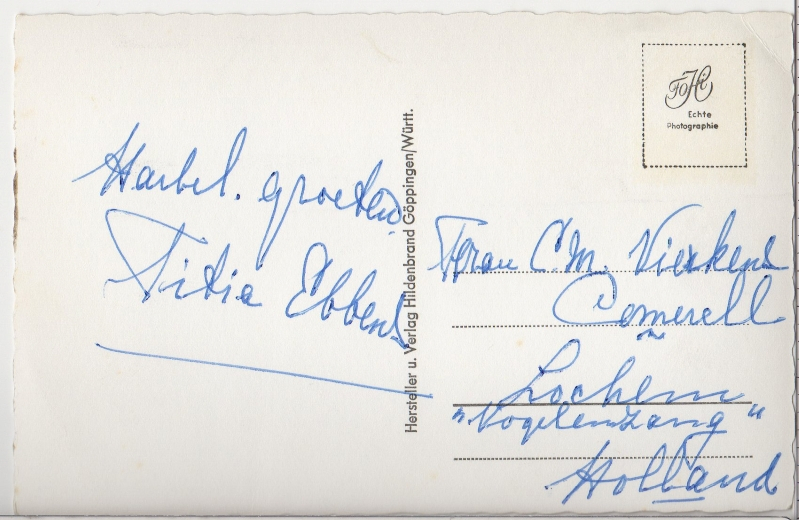 Hartel. groeten
Titia Ebbens
Hersteller u. Verlag Hildenbrand Göppingen/Württ.
FoHi
Echte
Photographie
Frau C.M. Vierkens
Comerell
Lochem
"Vogelenzang"
Holland